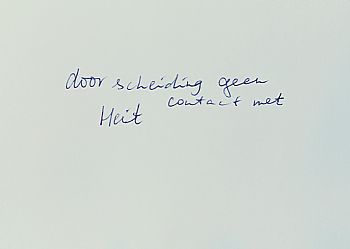 door scheiding geen
contact met
Heit